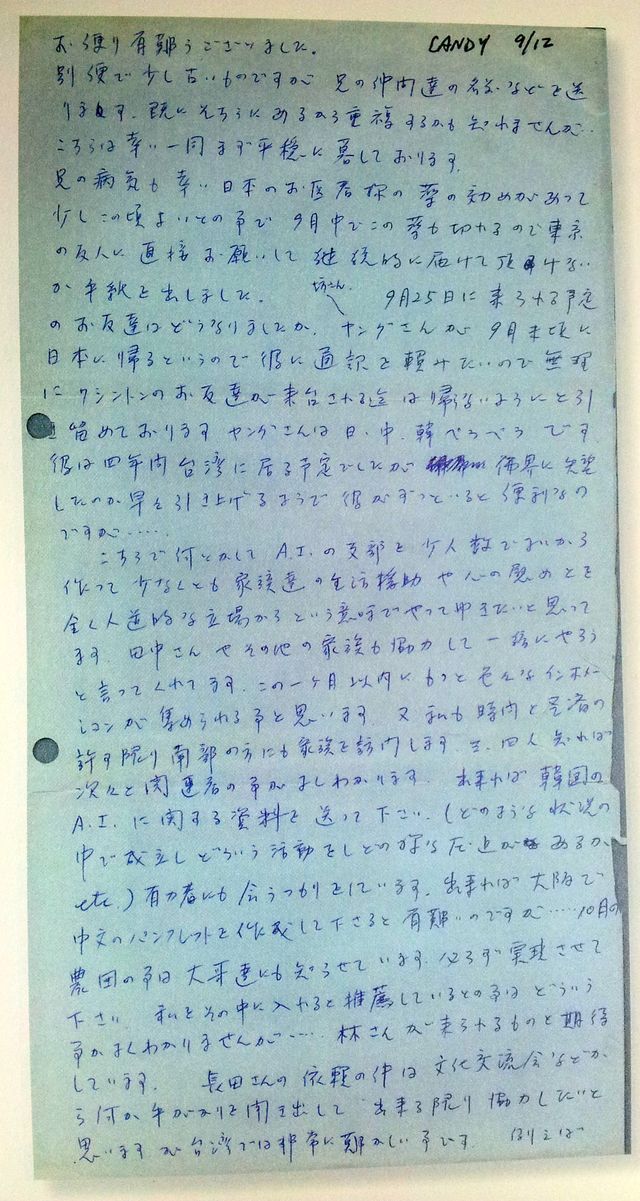 お便り有難うございました。 CANDY 9/12
別便で少し古いものですが 兄の仲間達の名前などを送
ります. 既にそちらにあるから重複するかも知れませんが…
こちらは幸い一同まず平穏に暮しております.
兄の病気も幸い日本のお医者様の薬の効めがあって
少しこの頃よいとの事で 9月中でこの薬も切れるので東京
の友人に直接お願いして継続的に届けて頂けない
か手紙を出しました. 9月25日に来られる予定
坊さん
のお友達はどうなりましたか. ヤングさんが 9月末頃に
日本に帰るというので彼に通訳を頼みたいので無理
にワシントンのお友達が来台される迄は帰らないようにと引
き留めております ヤングさんは日.中.韓ぺらぺらです.
彼は四年間台湾に居る予定でしたが 佛界に失望
したのか早々引き上げるようで彼がずっといると便利なの
ですが……
こちらで何とかして A.I.の支部を少人数でよいから
作って少なくとも家族達の生活援助や心の慰めとを
全く人道的な立場からという意味でやって行きたいと思って
ます. 田中さんやその他の家族も協力して一緒にやろう
と言ってくれてます. この一ヶ月以内にもっと色々なインホメー
ションが集められる事と思います 又私も時間と
許す限り南部の方にも家族を訪問します. 三.四人知れば
次々と関連者の事がよくわかります. 出来れば韓国の
A.I.に関する資料を送って下さい. (どのような状況の
中で成立しどういう活動をしどの様な圧迫があるか
etc.) 有力者にも会うつもりをしています. 出来れば大阪で
中文のパンフレットを作成して下さると有難いのですが……10月の
農団の事は大哥達にも知らせています. 必ず実現させて
下さい 私をその中に入れると推薦しているとの事はどういう
事かよくわかりませんが…… 林さんが来られるものと期待
しています. 長田さんの依頼の件は文化交流会などか
ら何か手がかりを聞き出して出来る限り協力したいと
思いますが台湾では非常に難かしい事です 例えば